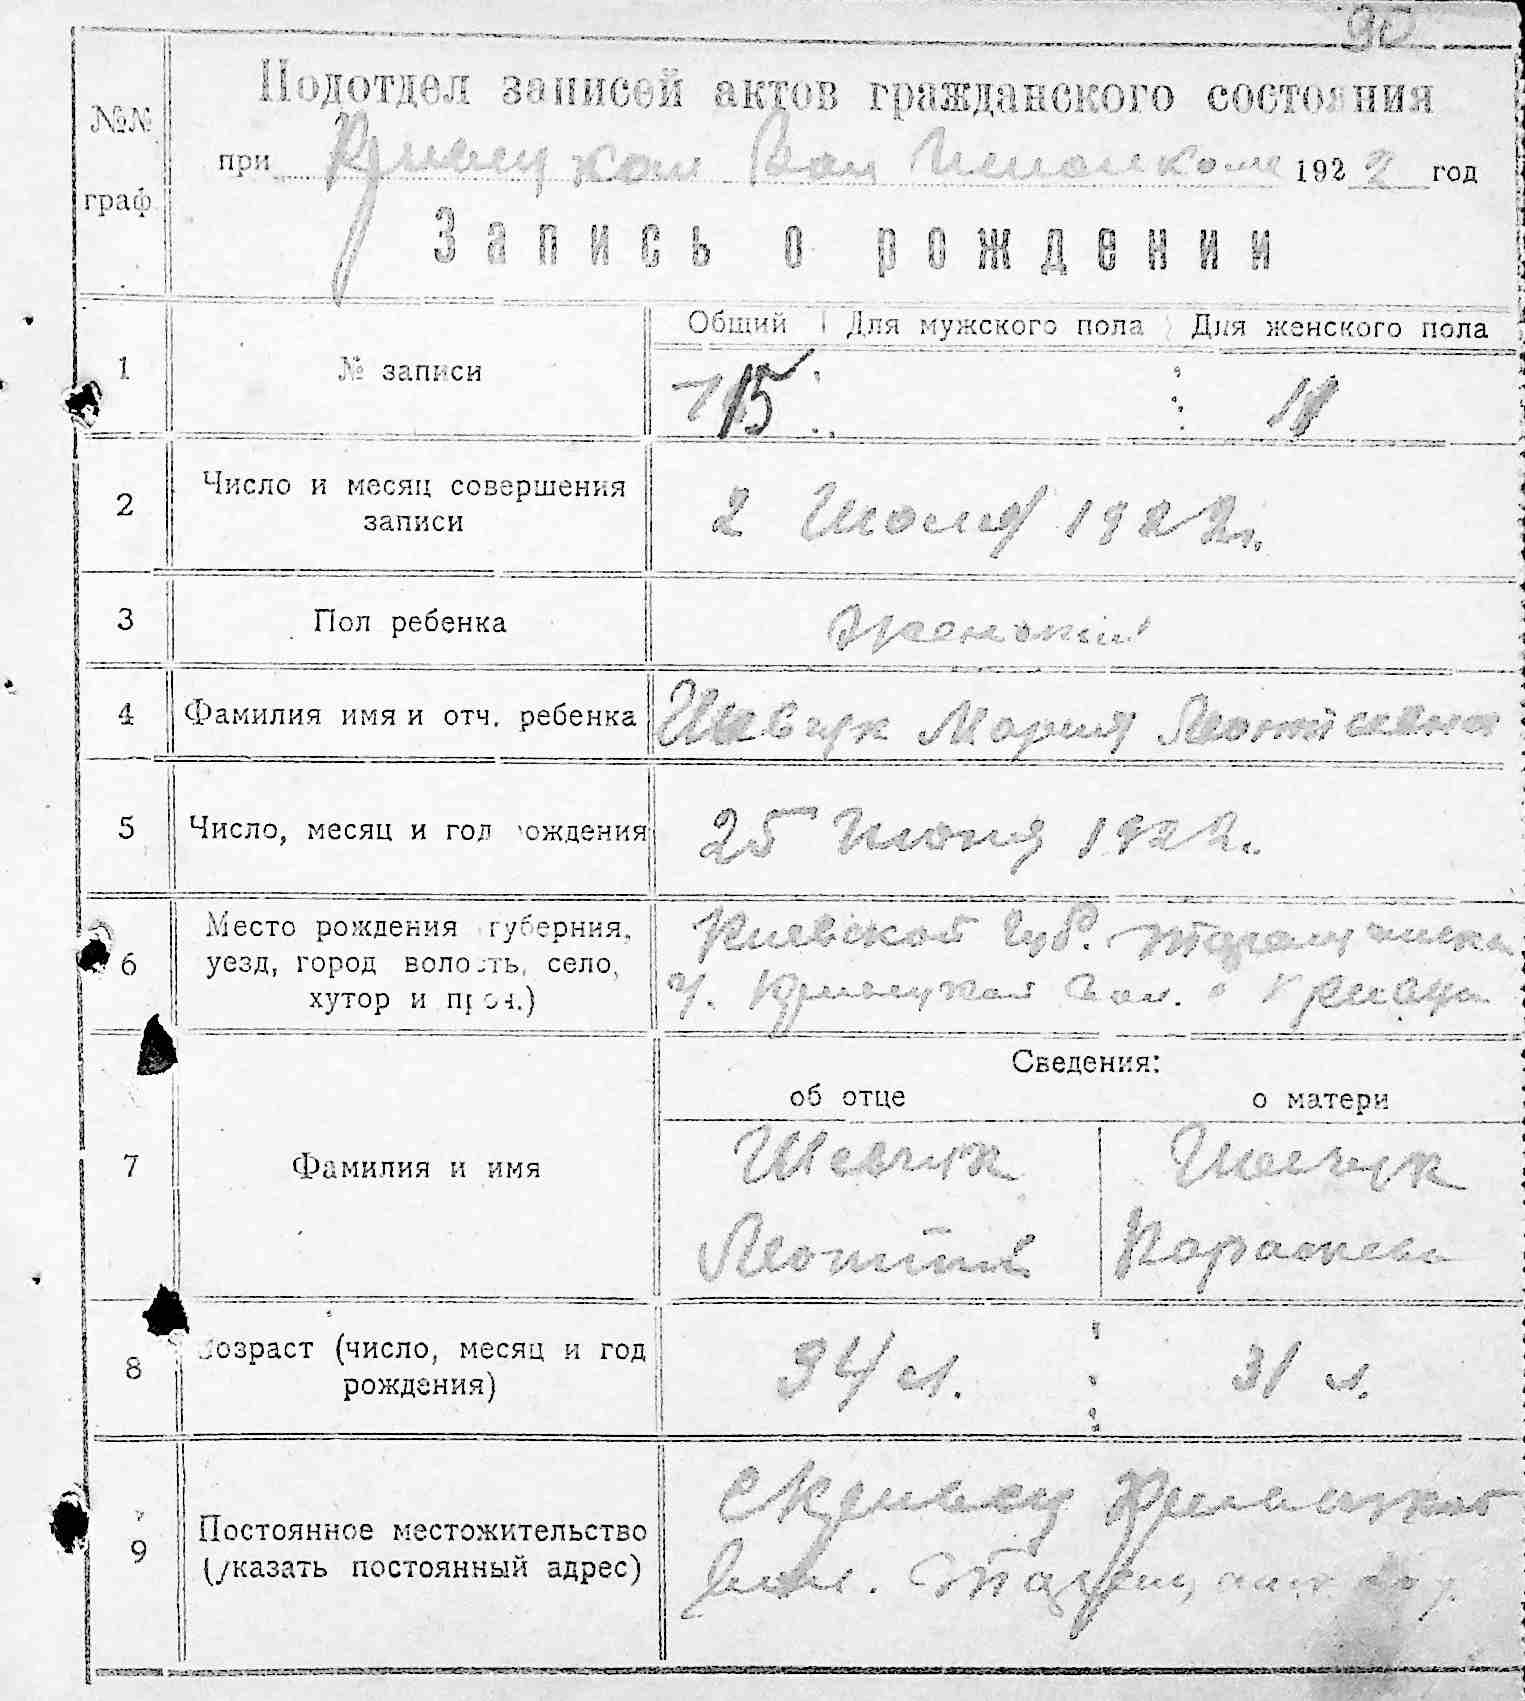 95
№№ граф.
Подотдел записей актов гражданского состояния
при Кривецком Вол Исполкоме 1922 год
Запись о рождении
Общий Для мужского пола Для женского пола
1 № записи 15
2 Число и месяц совершения
записи
2 Июля 1922 г.
3 Пол ребенка женский
4 Фамилия имя и отч. ребенка Шевчук Мария Леонтиевна
5 Число, месяц и год рождения 25 Июня 1922 г.
6 Место рождения губерния,
уезд, город волость, село,
хутор и проч.)
Киевской губ. Таращанск
у. Кривецкой вол. Кривец
Сведения:
об отце о матери
7 Фамилия и имя
Шевчук Шевчук
Леонтий Параскева
8 Возраст (число, месяц и год
рождения)
34 л. 31 л.
9 Постоянное местожительство
(указать постоянный адрес)
с Кривец Кривецкой
вол. Таращанск